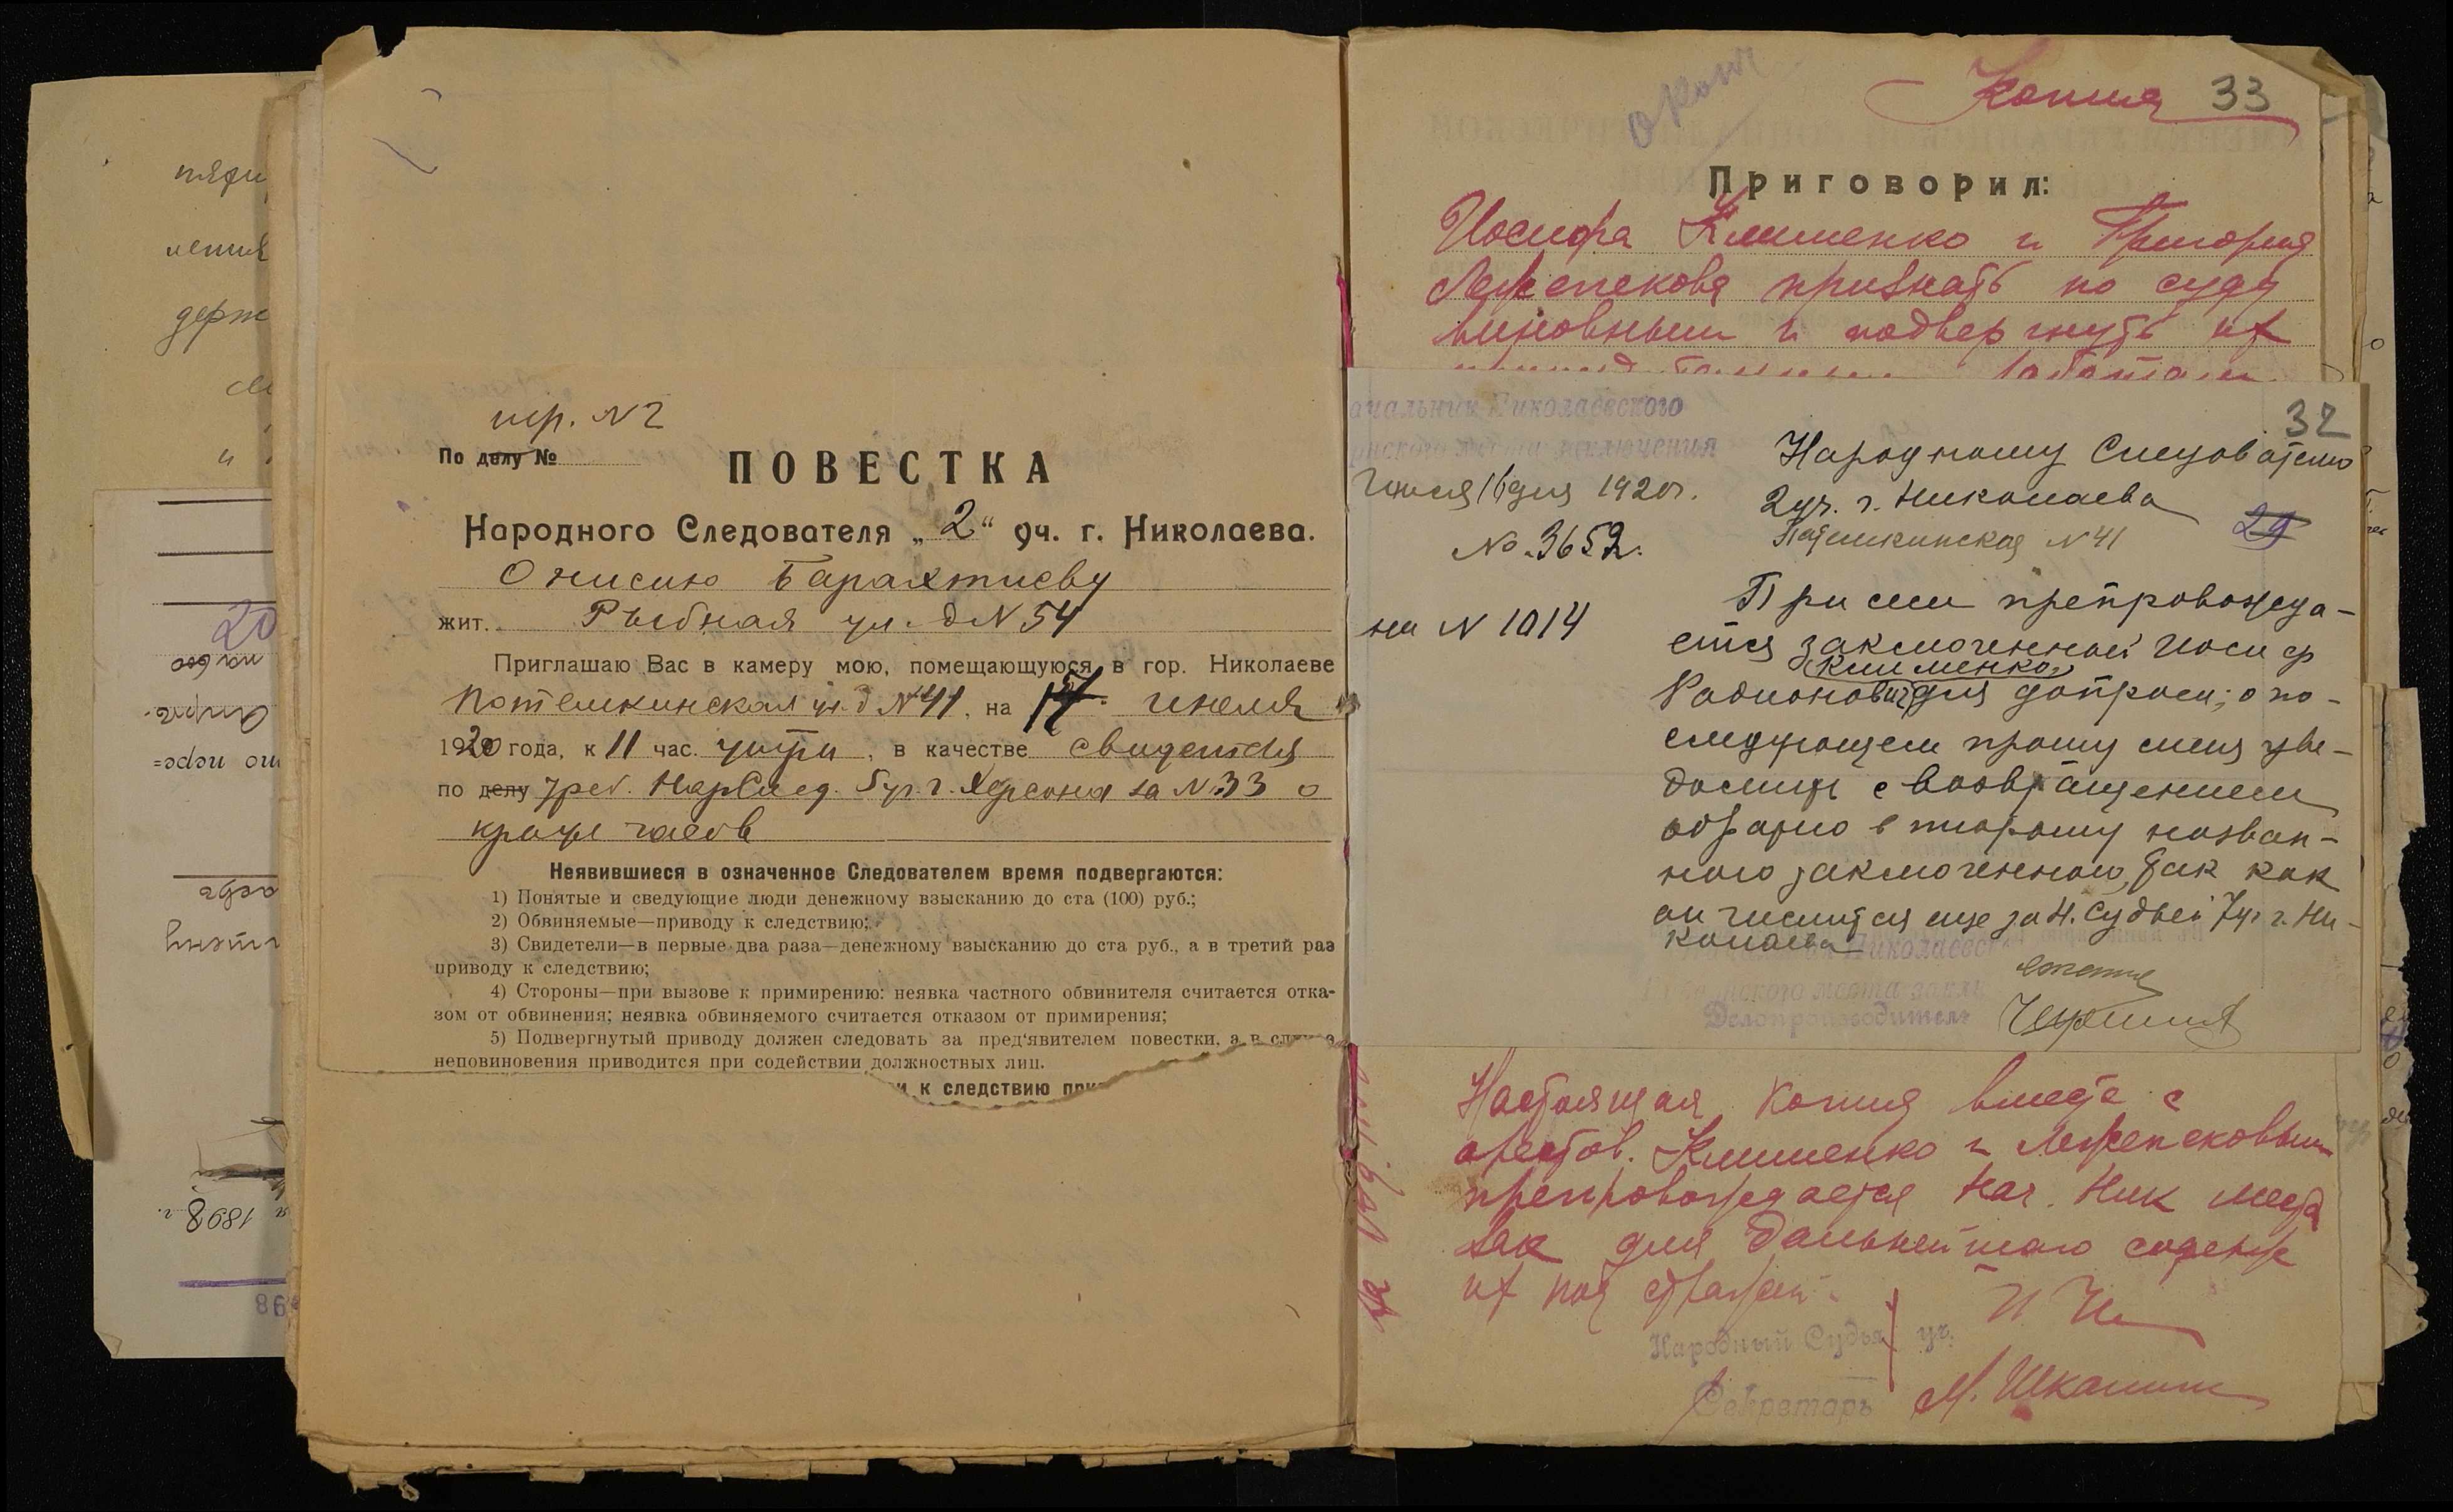 пяти
ления
держ
и
20
на 600
1898 г.
86
стр. N 2
По делу №
ПОВЕСТКА
Народного Следователя „2“ уч. г. Николаева.
Онисию Барахтиеву
жит. Рыбная ул. д N 54
Приглашаю Вас в камеру мою, помещающуюся в гор. Николаеве
Потемкинская ул д N 41, на 17 июля
1920 года, к 11 час. утра, в качестве свидетеля
по делу треб. НарСлед. 5 уч. г. Херсона за N 33 о
краже часов
Неявившиеся в означенное Следователем время подвергаются:
1) Понятые и сведующие люди денежному взысканию до ста (100) руб.;
2) Обвиняемые—приводу к следствию;
3) Свидетели—в первые два раза—денежному взысканию до ста руб., а в третий раз
приводу к следствию;
4) Стороны—при вызове к примирению: неявка частного обвинителя считается отка-
зом от обвинения; неявка обвиняемого считается отказом от примирения;
5) Подвергнутый приводу должен следовать за пред‘явителем повестки, а в случае
неповиновения приводится при содействии должностных лиц.
и к следствию при
Копия 33
Приговорил:
Иосифа Клименко и Григория
Лежепекова признать по суду
виновными и подвергнуть их
работам
ачальник Николаевского
заключения
Июля 16 дня 1920 г.
No. 3652.
на N 1014
32
Народному Следователю
2 уч. г. Николаева
Потемкинская N 41
29
При сем препровожда-
ется заключенный Иосиф
Клименко
Радионович для допроса; о по-
следующем прошу меня уве-
домить с возвращением
обратно в тюрьму назван-
ного заключенного, так как
он числится еще за Н. Судьей 7 уч. г. Ни-
колаева
Николаевс
места закл
Делопроизводитель
Настоящая копия вместе с
арестов. Клименко и Лежепековым
препровождается Нач. Ник места
зак для дальнейшаго содерж
их под стражей.
Народный Судья уч.
Секретарь М. Шкапин